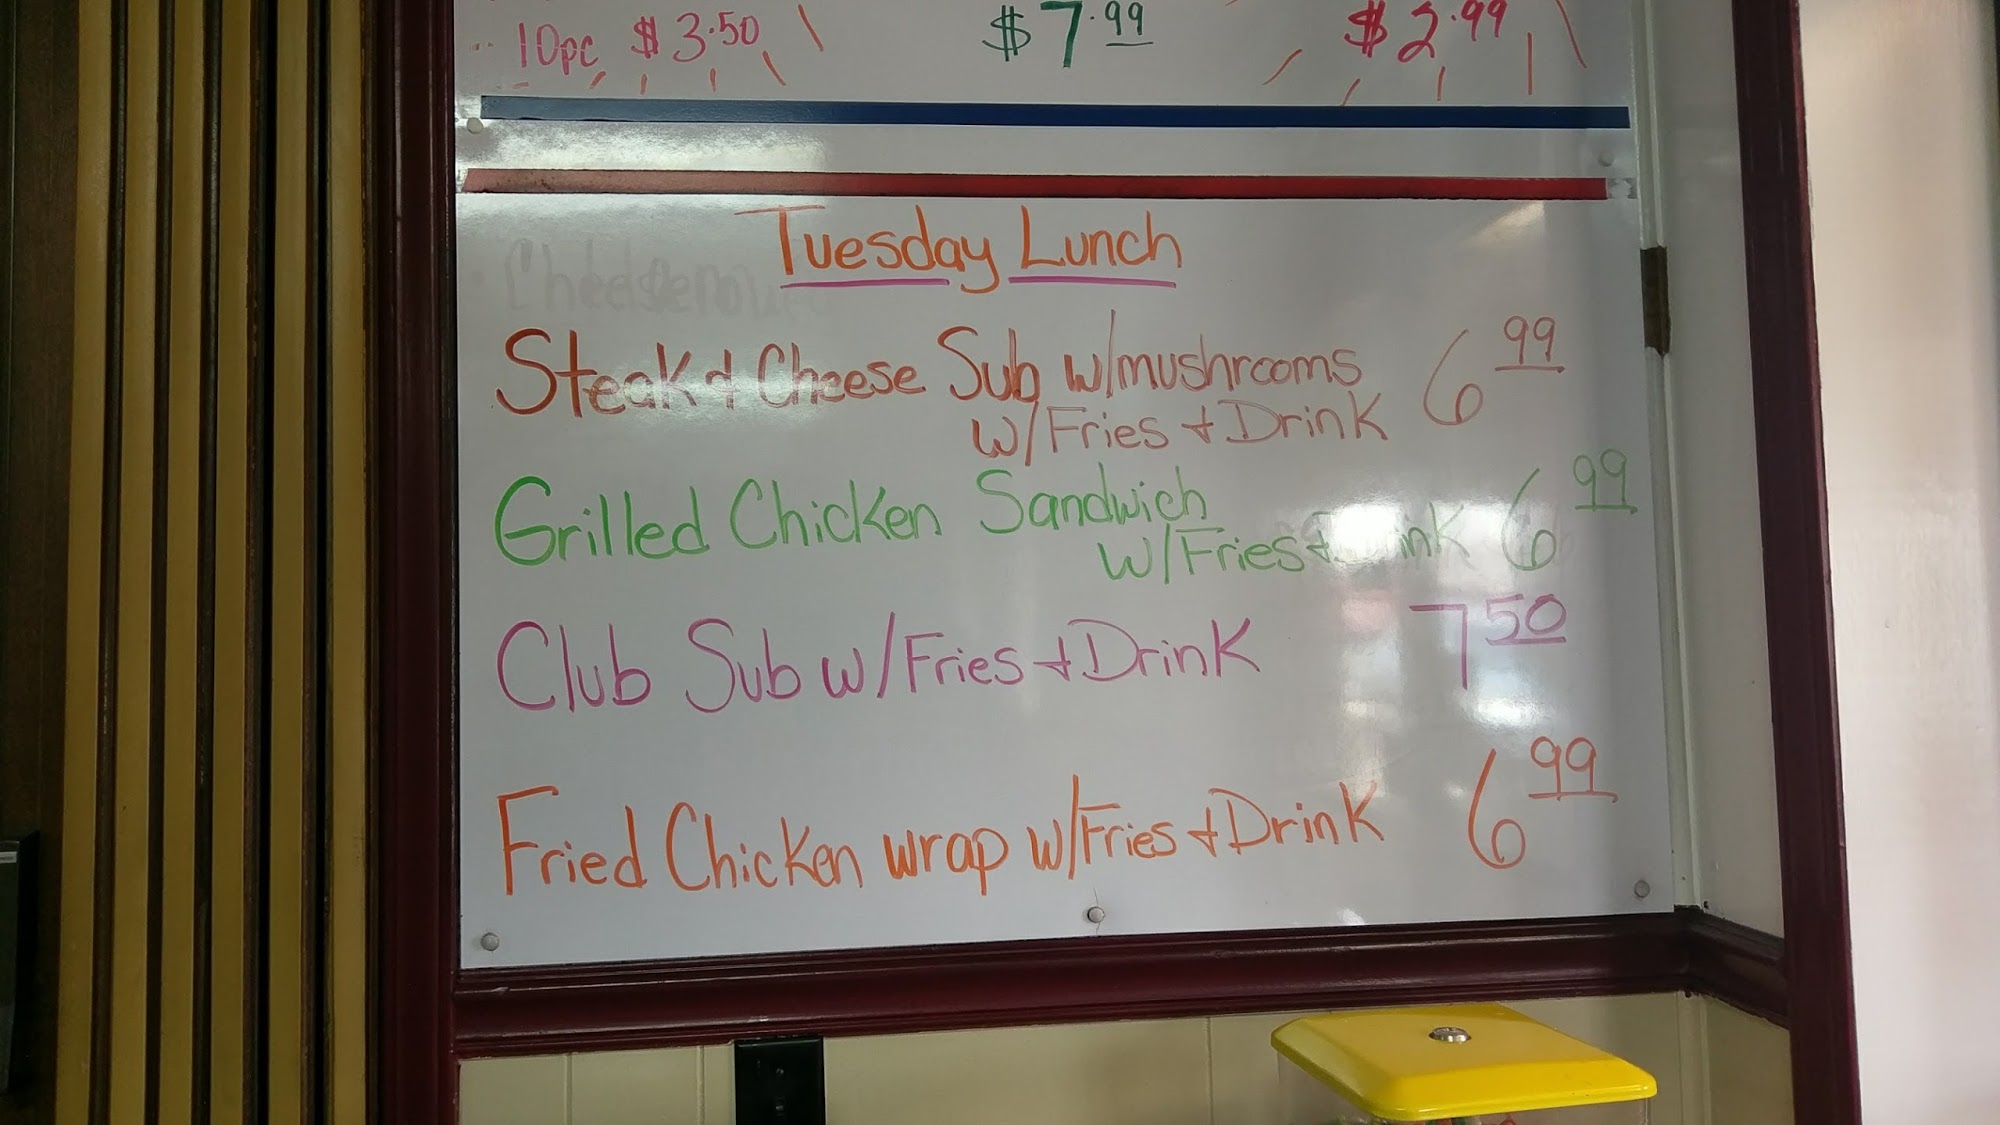 10pc $3.50 $7.99 $2.99
Tuesday Lunch
Steak & Cheese Sub w/mushrooms 6 99
w/Fries & Drink
Grilled Chicken Sandwich 6 99
w/Fries & Drink
Club Sub w/Fries & Drink 7 50
Fried Chicken wrap w/Fries & Drink 6 99